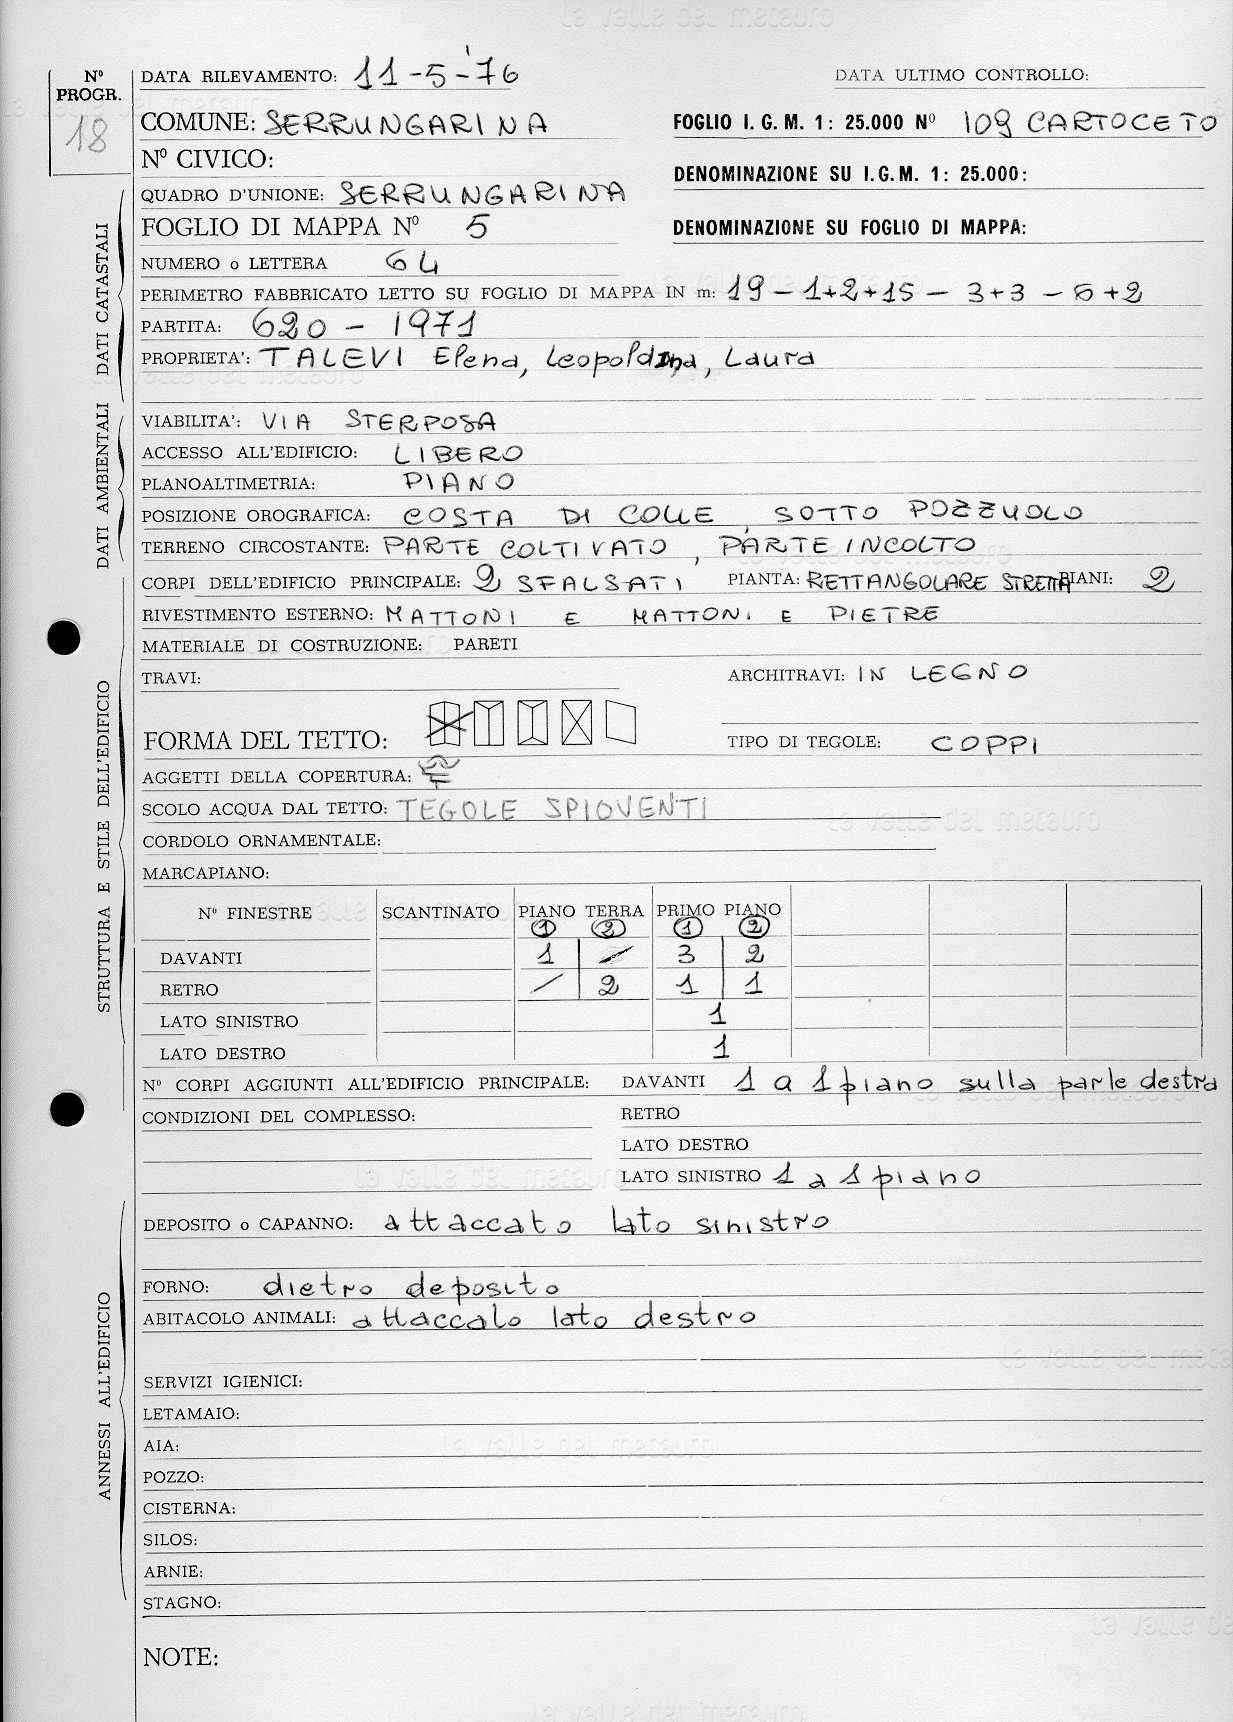 Nº PROGR.
18
DATA RILEVAMENTO: 11-5-'76
DATA ULTIMO CONTROLLO:
COMUNE: SERRUNGARINA
FOGLIO I.G.M. 1: 25.000 Nº 109 CARTOCETO
Nº CIVICO:
DENOMINAZIONE SU I.G.M. 1: 25.000:
QUADRO D'UNIONE: SERRUNGARINA
FOGLIO DI MAPPA Nº 5
DENOMINAZIONE SU FOGLIO DI MAPPA:
DATI CATASTALI
NUMERO o LETTERA 64
PERIMETRO FABBRICATO LETTO SU FOGLIO DI MAPPA IN m: 19 - 1+2+15 - 3+3 - 5+2
PARTITA: 620 - 1971
PROPRIETA': TALEVI Elena, Leopoldina, Laura
DATI AMBIENTALI
VIABILITA': VIA STERPOSA
ACCESSO ALL'EDIFICIO: LIBERO
PLANOALTIMETRIA: PIANO
POSIZIONE OROGRAFICA: COSTA DI COLLE, SOTTO POZZUOLO
TERRENO CIRCOSTANTE: PARTE COLTIVATO, PARTE INCOLTO
STRUTTURA E STILE DELL'EDIFICIO
CORPI DELL'EDIFICIO PRINCIPALE: 2 SFALSATI PIANTA: RETTANGOLARE STRETTA PIANI: 2
RIVESTIMENTO ESTERNO: MATTONI E MATTONI E PIETRE
MATERIALE DI COSTRUZIONE: PARETI
TRAVI:
ARCHITRAVI: IN LEGNO
FORMA DEL TETTO:
TIPO DI TEGOLE: COPPI
AGGETTI DELLA COPERTURA:
SCOLO ACQUA DAL TETTO: TEGOLE SPIOVENTI
CORDOLO ORNAMENTALE:
MARCAPIANO:
Nº FINESTRE SCANTINATO PIANO TERRA PRIMO PIANO
1 2 1 2
DAVANTI 1 - 3 2
RETRO - 2 1 1
LATO SINISTRO 1
LATO DESTRO 1
Nº CORPI AGGIUNTI ALL'EDIFICIO PRINCIPALE: DAVANTI 1 a 1 piano sulla parte destra
CONDIZIONI DEL COMPLESSO:
RETRO
LATO DESTRO
LATO SINISTRO 1 a 1 piano
ANNESSI ALL'EDIFICIO
DEPOSITO o CAPANNO: attaccato lato sinistro
FORNO: dietro deposito
ABITACOLO ANIMALI: attaccato lato destro
SERVIZI IGIENICI:
LETAMAIO:
AIA:
POZZO:
CISTERNA:
SILOS:
ARNIE:
STAGNO:
NOTE:
la valle del metauro